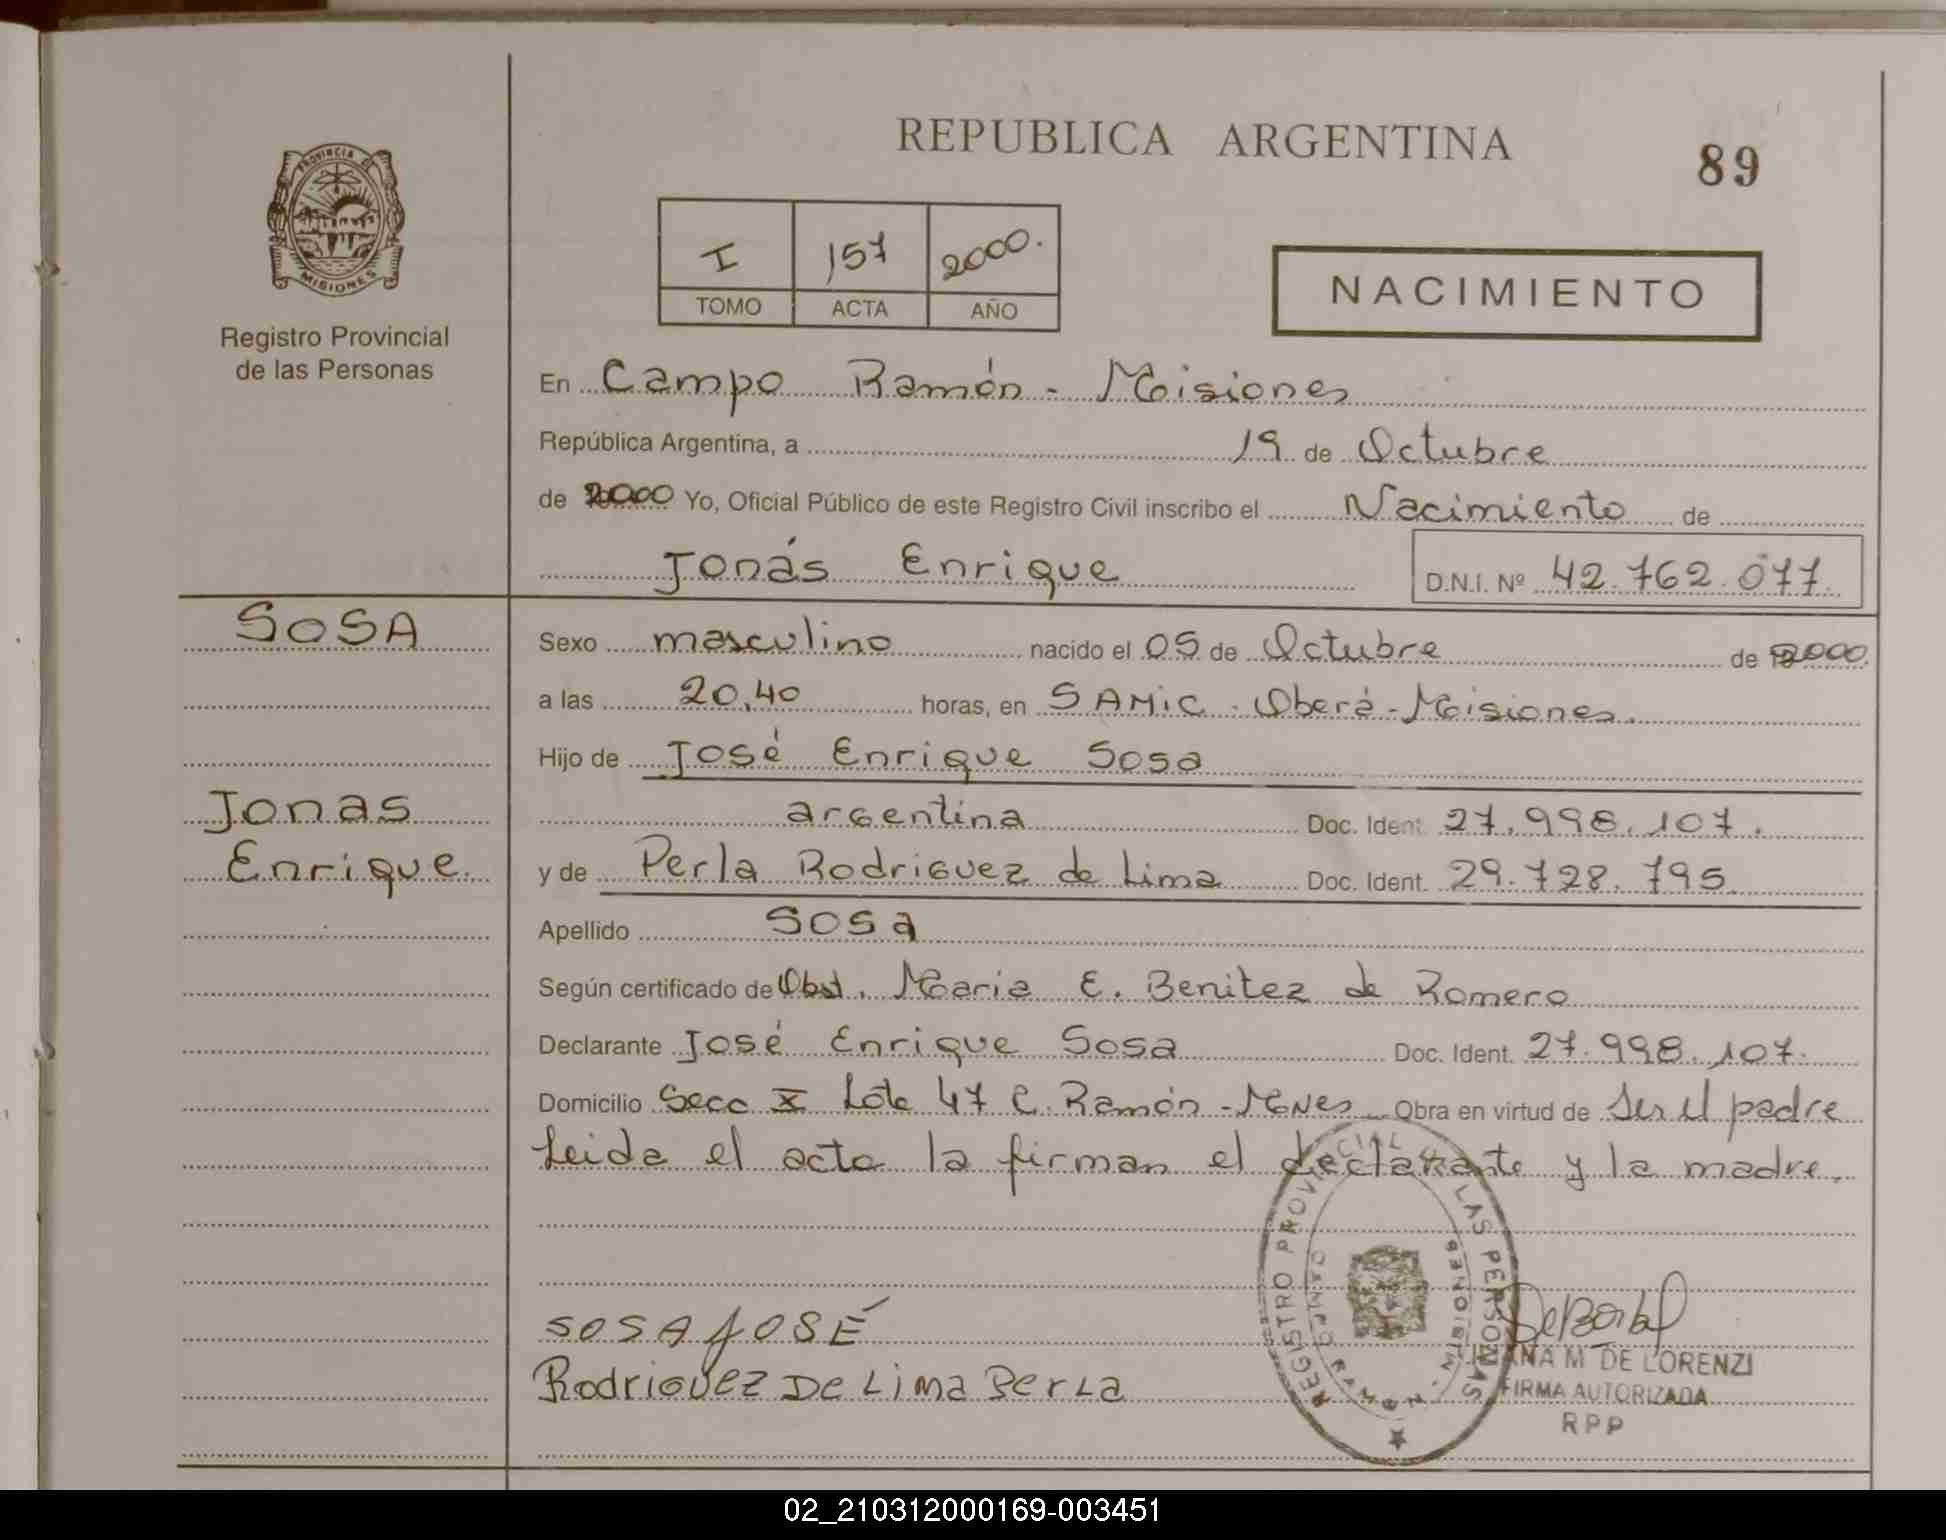 REPUBLICA ARGENTINA
89
PROVINCIA DE
MISIONES
Registro Provincial
de las Personas
I 157 2000.
TOMO ACTA AÑO
NACIMIENTO
En Campo Ramón - Misiones
República Argentina, a 19 de Octubre
de 2000 Yo, Oficial Público de este Registro Civil inscribo el Nacimiento de
Jonás Enrique D.N.I. Nº 42.762.077.
SOSA
Sexo masculino nacido el 05 de Octubre de 2000
a las 20,40 horas, en SAMIC - Oberá - Misiones.
Hijo de José Enrique Sosa
Jonas
argentina Doc. Ident. 27.998.107.
Enrique
y de Perla Rodriguez de Lima Doc. Ident. 29.728.795
Apellido SOSa
Según certificado de Obst. Maria E. Benitez de Romero
Declarante José Enrique Sosa Doc. Ident. 27.998.107.
Domicilio Secc X Lote 47 C. Ramón - Mnes Obra en virtud de Ser el padre
Leida el acta la firman el declarante y la madre.
SOSA JOSÉ
Rodriguez De Lima Perla
REGISTRO PROVINCIAL LAS PERSONAS
MISIONES
M DE LORENZI
FIRMA AUTORIZADA
RPP
02_210312000169-003451